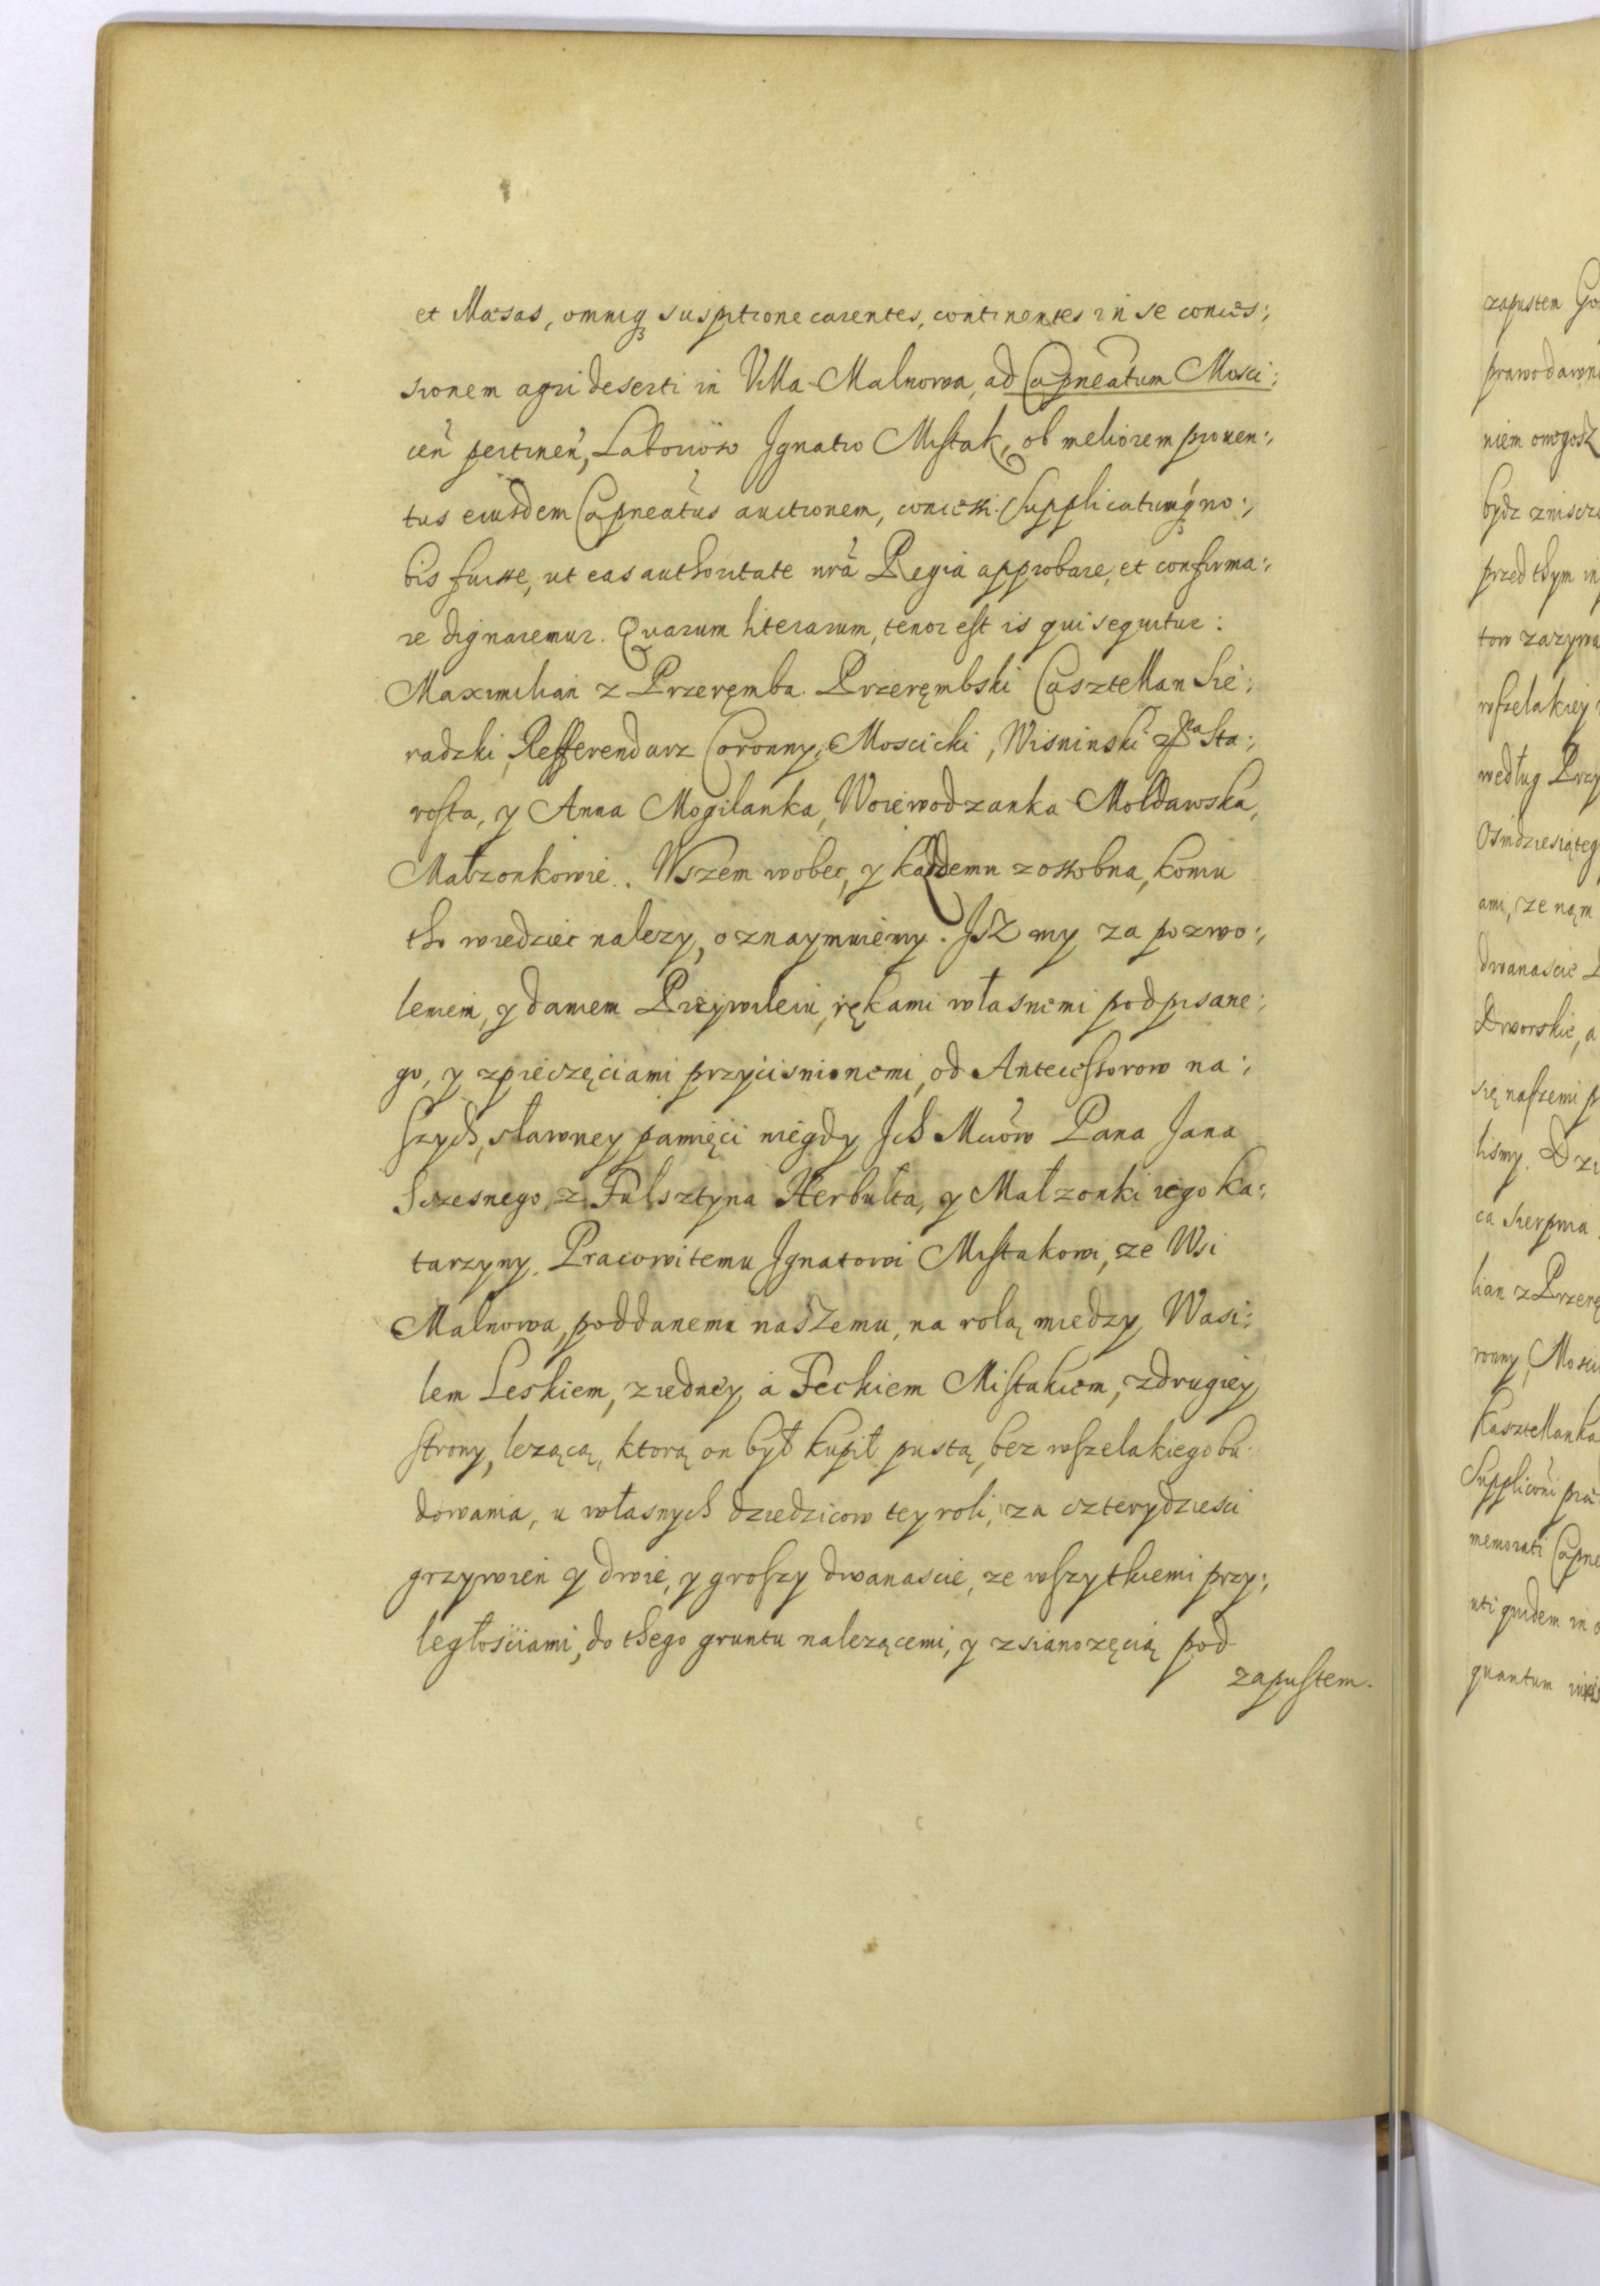 et Illaesas, omniq3 suspitione carentes, continentes in se conces:,
sionem agri deserti in Villa Malnowa, ad Capneatum Mosci:
ceñ pertineñ, Ignatio Mistak, ob meliorem proven:,
tus eiusdem Capneatus auctionem, concessi. Supplicatumq3 no:,
bis fuisse, ut eas authoritate nrã Regia approbare, et confirma:,
re dignaremur. Quarum literarum, tenor est is qui sequitur:
Maximilian z Przeręmba Przerębski Casztellan Sie:
radzki, Refferendarz Coronny, Moscicki, Wisninski Sta:,
rosta, y Anna Mogilanka, Woiewodzanka Moldawska,
Małzonkowie. Wszem wobec, y każdemu zossobna, komu
tho wiedziec nalezy, oznaymuiemy. Isz my za pozwo:,
leniem, y daniem Przywileiu, rękami własnemi podpisane:,
go, y zpieczęciami przycisnionemi, od Antecessorow na:,
szych, sławney pamięci niegdy Ich Mciow Pana Jana
Sczesnego, z Fulsztyna Herbulta, y Małzonki iego Ka:,
tarzyny. Pracowitemu Ignatowi Mistakowi, ze Wsi
Malnowa, poddanemu naszemu, na rolą miedzy Wasi:,
lem Leskiem, ziedney, a Feckiem Mistakiem, zdrugiey
strony, lezącą, ktorą on był kupił pustą, bez wszelakiego bu:
dowania, u własnych dziedzicow tey roli, za czterydziesci
grzywien y dwie, y groszy dwanascie, ze wszytkiemi przy:,
ległościami, do thego gruntu nalezącemi, y zsianozęcią pod
zapustem.
zapustem
prawo
niem
bydz
przed thym
tow
wszelakiey
według
ami, ze nąm
dwanascie
Dworskie, a
się naszemi
lismy.
ca Sierpnia
lian z
ronny, Mosci
Kasztellanka
memorati
uti quidem in
quantum